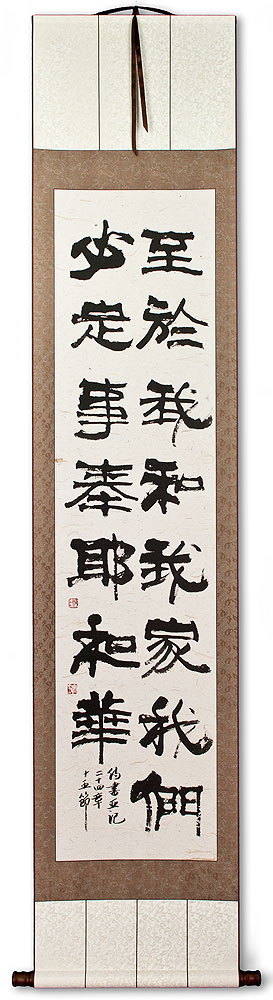 至於我和我家我們
必定事奉耶和華
約書亞記
二十四章
十五節